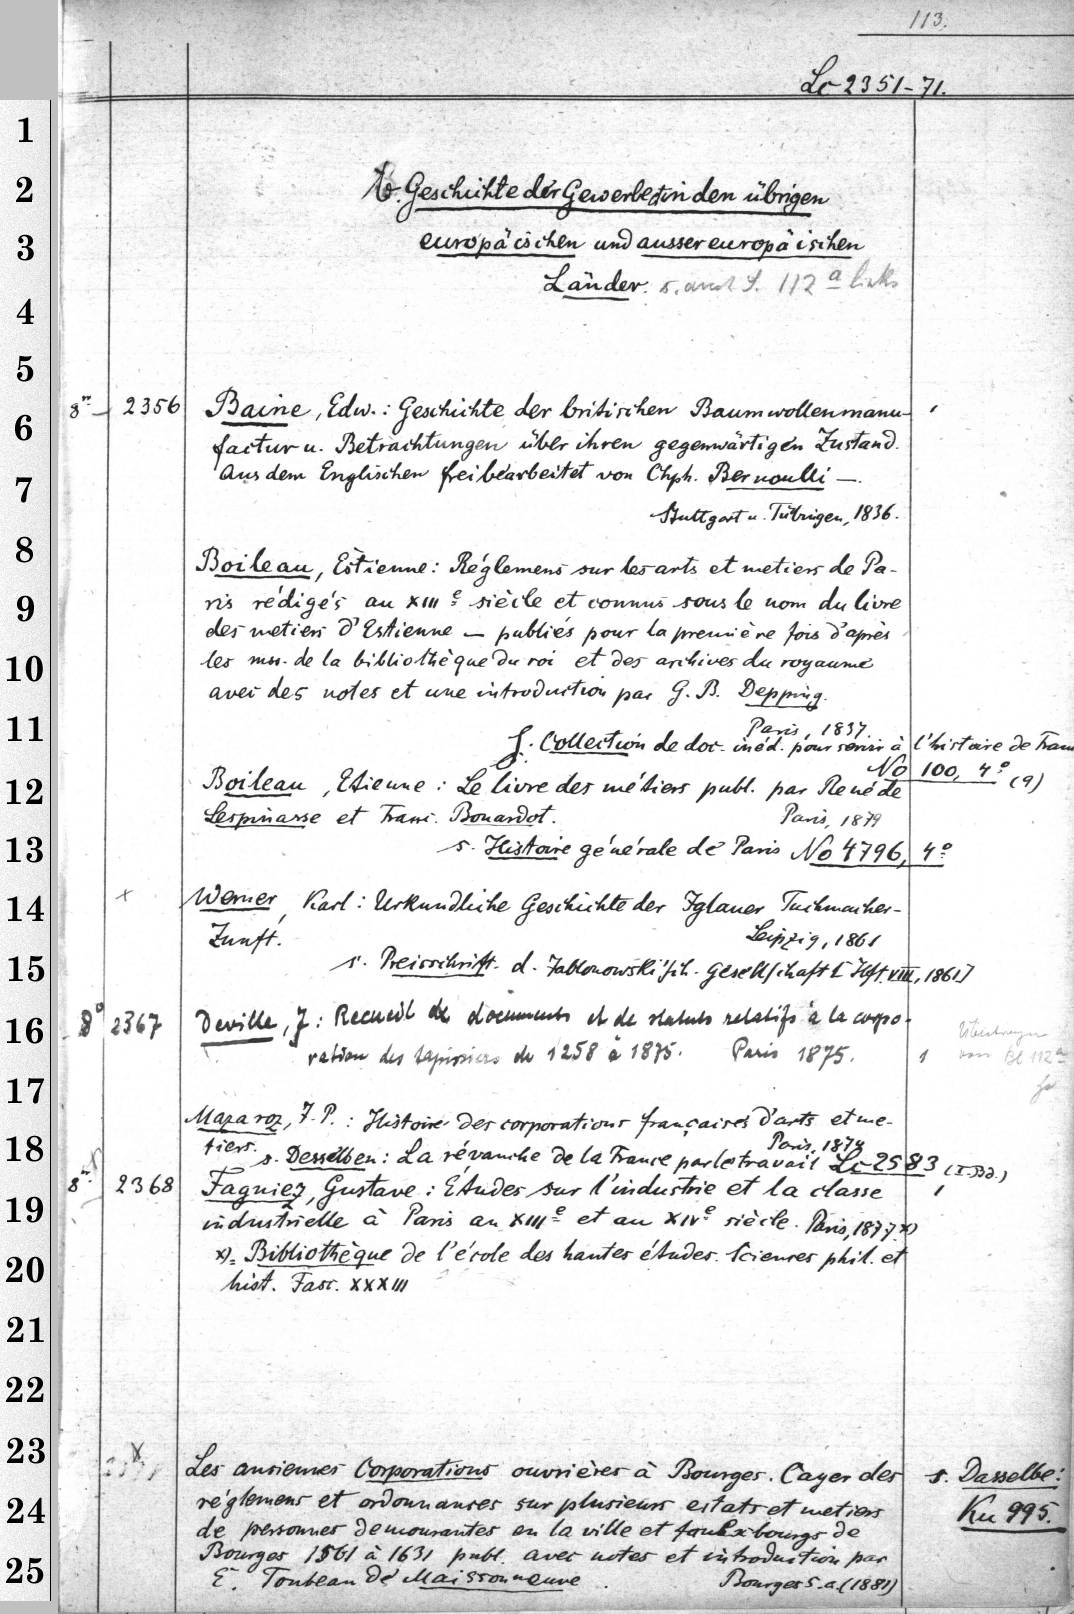 113.
Lc 2351-71.
b. Geschichte der Gewerbe in den übrigen
europäischen und aussereuropäischen
Länder. s. auch S. 112a links
8° 2356 Baine, Edw.: Geschichte der britischen Baumwollenmanu-
factur u. Betrachtungen über ihren gegenwärtigen Zustand.
Aus dem Englischen frei bearbeitet von Chph. Bernoulli —.
Stuttgart u. Tübingen, 1836.
Boileau, Estienne: Réglemens sur les arts et metiers de Pa-
ris rédigés au XIIIe siècle et connus sous le nom du livre
des metiers d'Estienne — publiés pour la première fois d'après
les mss. de la bibliothèque du roi et des archives du royaume
avec des notes et une introduction par G. B. Depping.
Paris, 1837.
f. Collection de doc. inéd. pour servir à l'histoire de Fran
No 100, 4° (9)
Boileau, Etienne: Le livre des métiers publ. par René de
Lespinasse et Franc. Bonardot. Paris, 1879
s. Histoire générale de Paris No 4796, 4°
x Werner, Karl: Urkundliche Geschichte der Iglauer Tuchmacher-
Zunft. Leipzig, 1861
s. Preisschrift. d. Jablonowski'sch. Gesellschaft [Hft. VIII, 1861]
8° 2367 Deville, J: Recueil de documents et de statuts relatifs à la corpo-
ration des tapissiers de 1258 à 1875. Paris 1875. 1
Übertragen
von Bl 112a
Mazaroz, J. P.: Histoire des corporations françaises d'arts et me-
tiers. Paris, 1874
s. Desselben: La révanche de la France par le travail Lc 2583 (I. Bd.)
8° 2368 Fagniez, Gustave: Etudes sur l'industrie et la classe 1
industrielle à Paris au XIIIe et au XIVe siècle. Paris, 1877 x)
x) = Bibliothèque de l'école des hautes études. Sciences phil. et
hist. Fasc. XXXIII
x Les anciennes Corporations ouvrières à Bourges. Cayer des s. Dasselbe:
réglemens et ordonnances sur plusieurs estats et metiers Ku 995.
de personnes demourantes en la ville et faulxbourgs de
Bourges 1561 à 1631 publ. avec notes et introduction par
E. Toubeau de Maissonneuve. Bourges s.a. (1881)